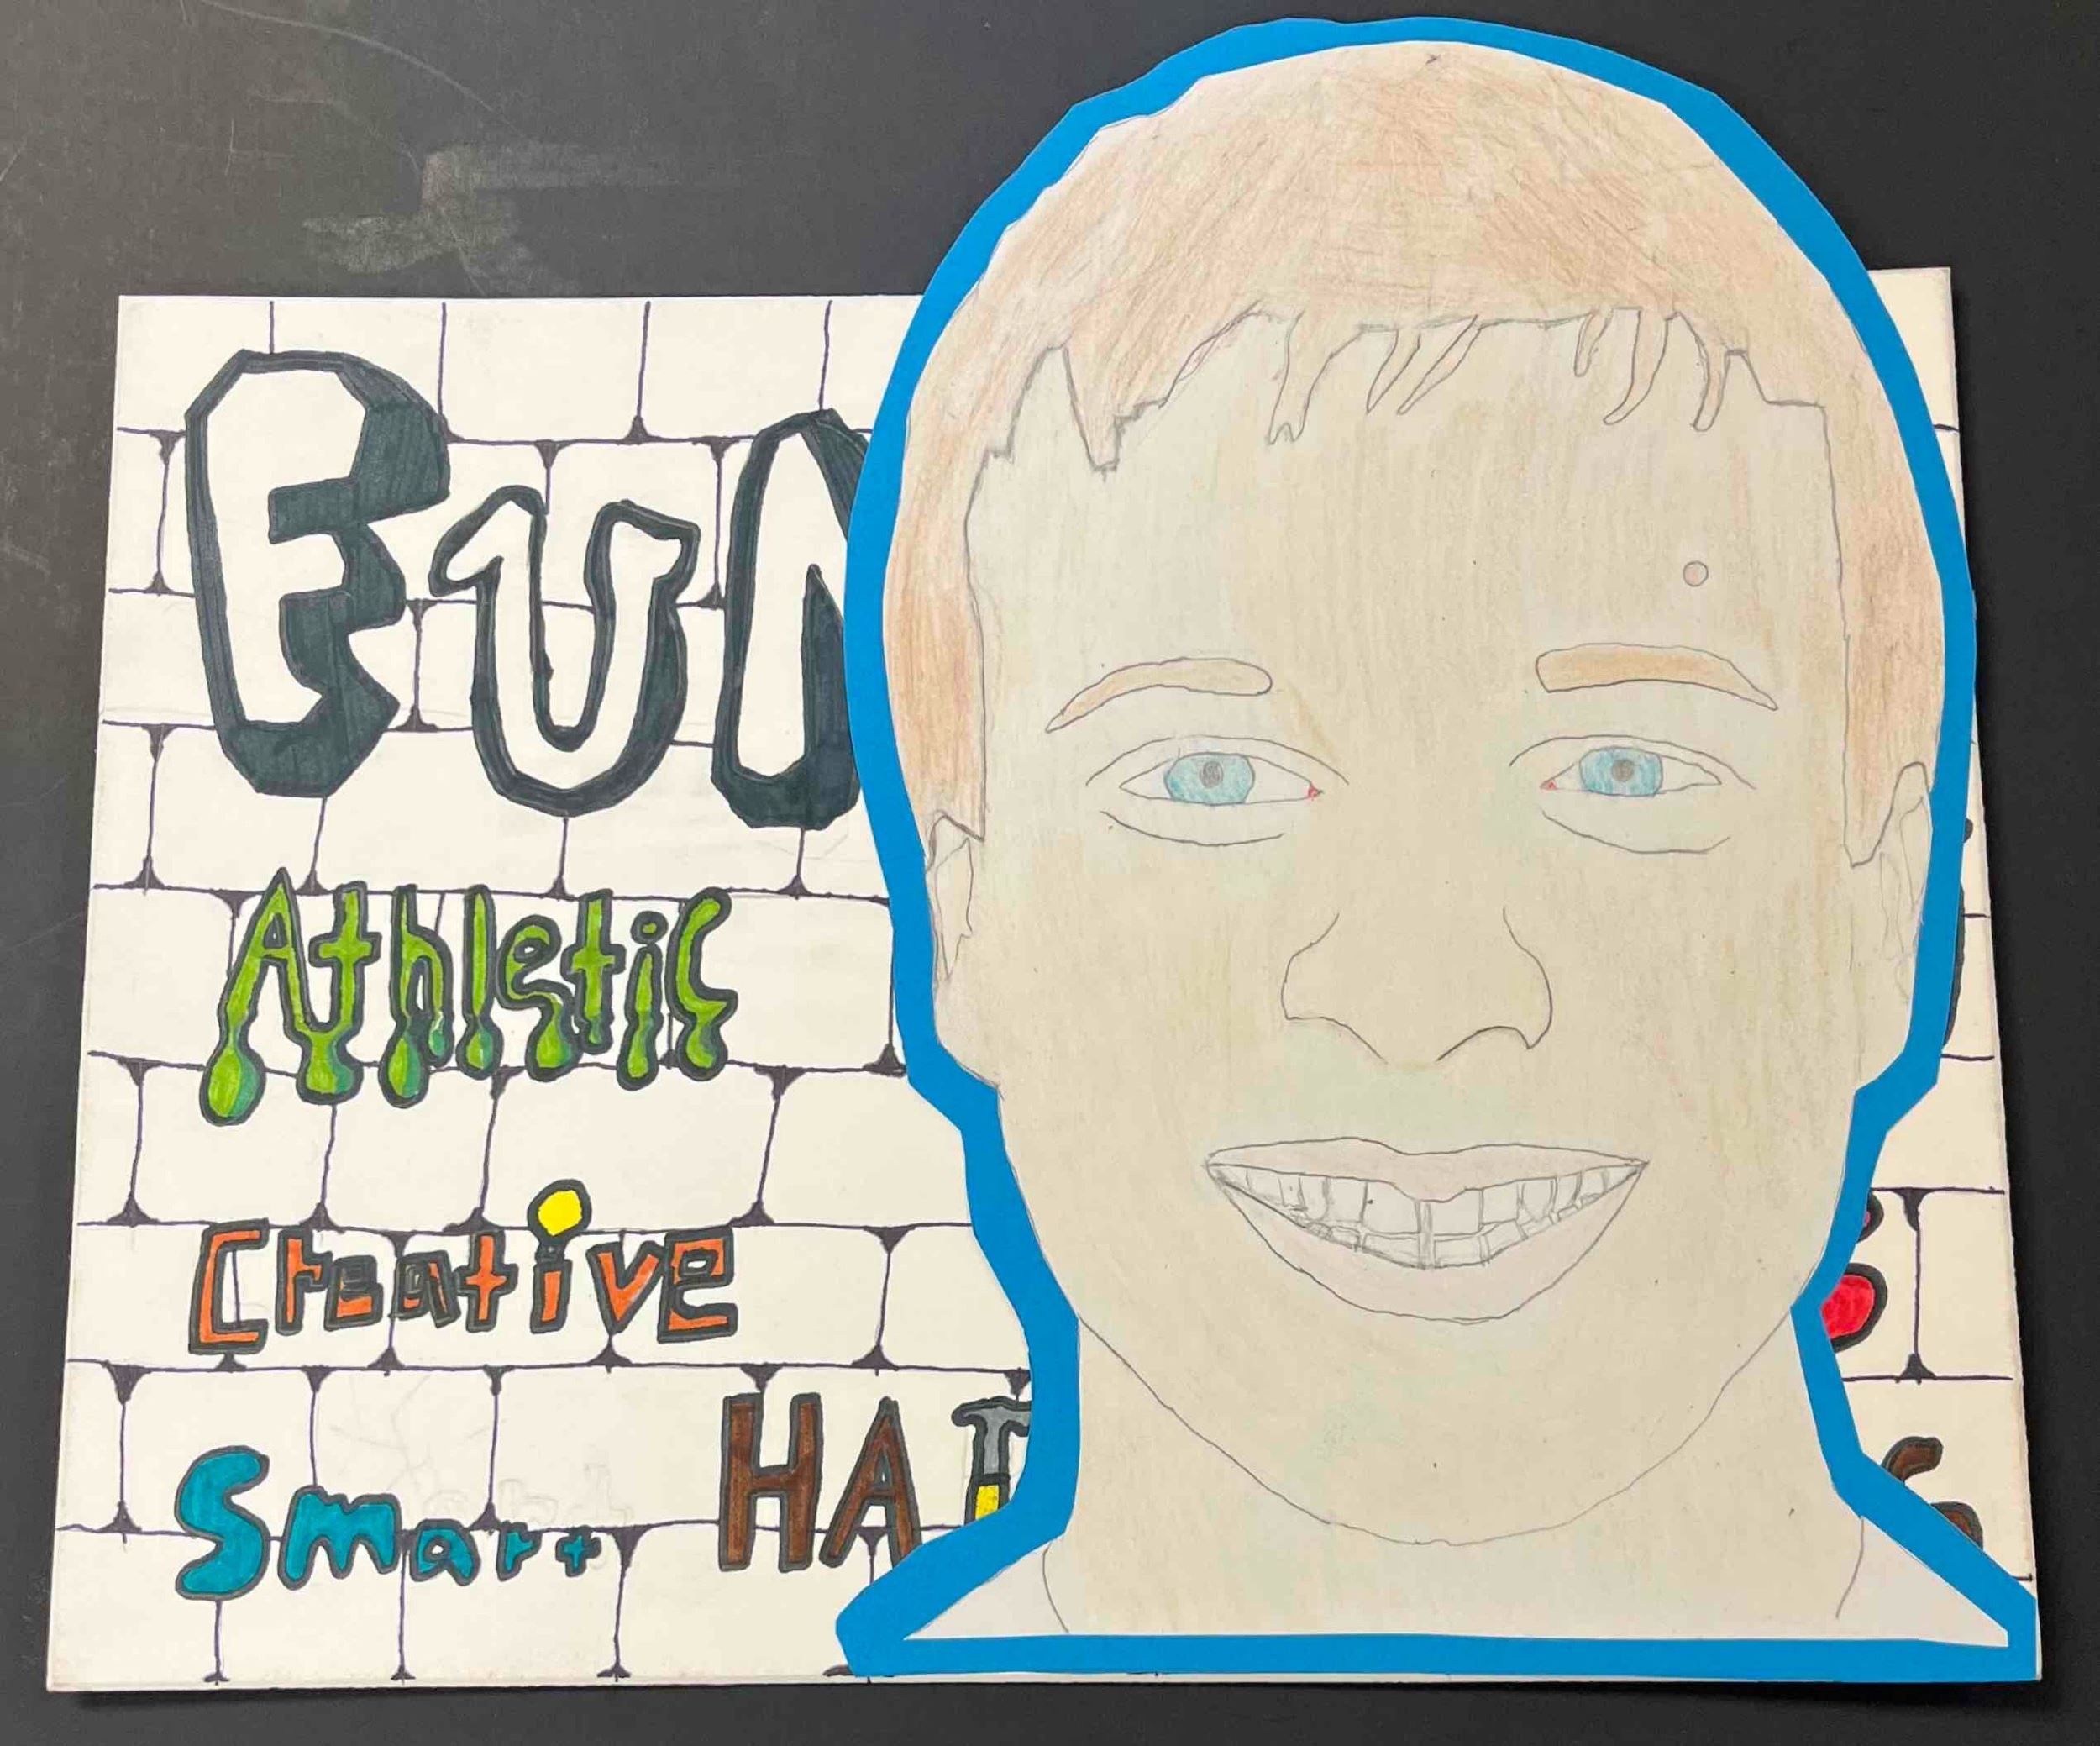 Fun
Athletic
Creative
Smart
HAT